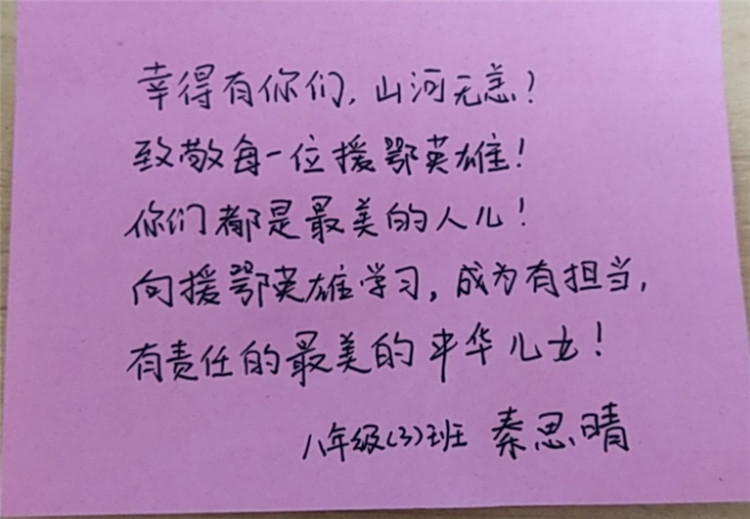 幸得有你们,山河无恙!
致敬每一位援鄂英雄!
你们都是最美的人儿!
向援鄂英雄学习,成为有担当,
有责任的最美的中华儿女!
八年级(3)班 秦思晴